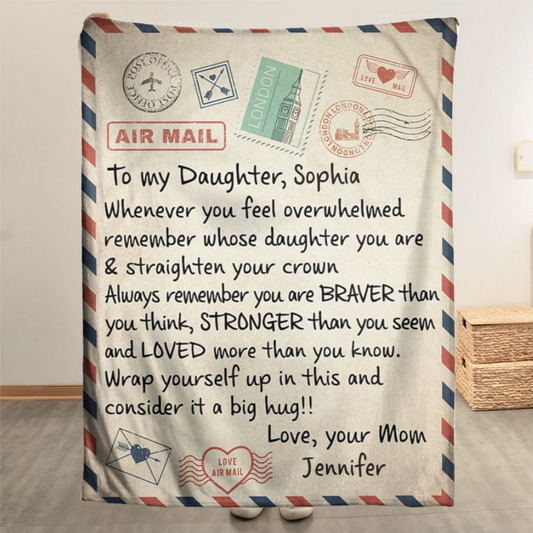 POST OFFICE
POST OFFICE
LONDON
LOVE MAIL
LONDON LONDON LONDON LONDON
AIR MAIL
To my Daughter, Sophia
Whenever you feel overwhelmed
remember whose daughter you are
& straighten your crown
Always remember you are BRAVER than
you think, STRONGER than you seem
and LOVED more than you know.
Wrap yourself up in this and
consider it a big hug!!
Love, your Mom
Jennifer
LOVE
AIR MAIL